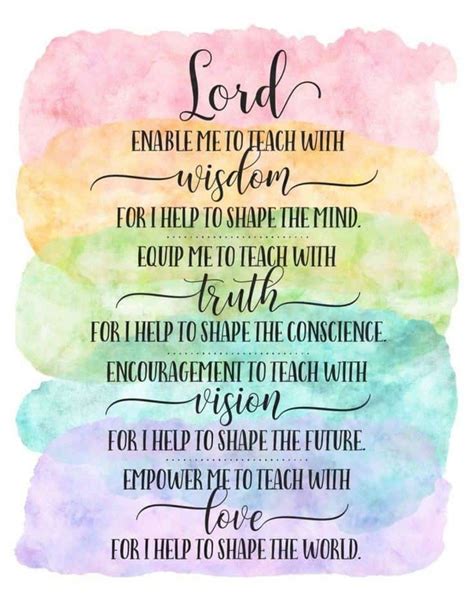 Lord
ENABLE ME TO TEACH WITH
wisdom
FOR I HELP TO SHAPE THE MIND.
EQUIP ME TO TEACH WITH
truth
FOR I HELP TO SHAPE THE CONSCIENCE.
ENCOURAGEMENT TO TEACH WITH
vision
FOR I HELP TO SHAPE THE FUTURE.
EMPOWER ME TO TEACH WITH
love
FOR I HELP TO SHAPE THE WORLD.